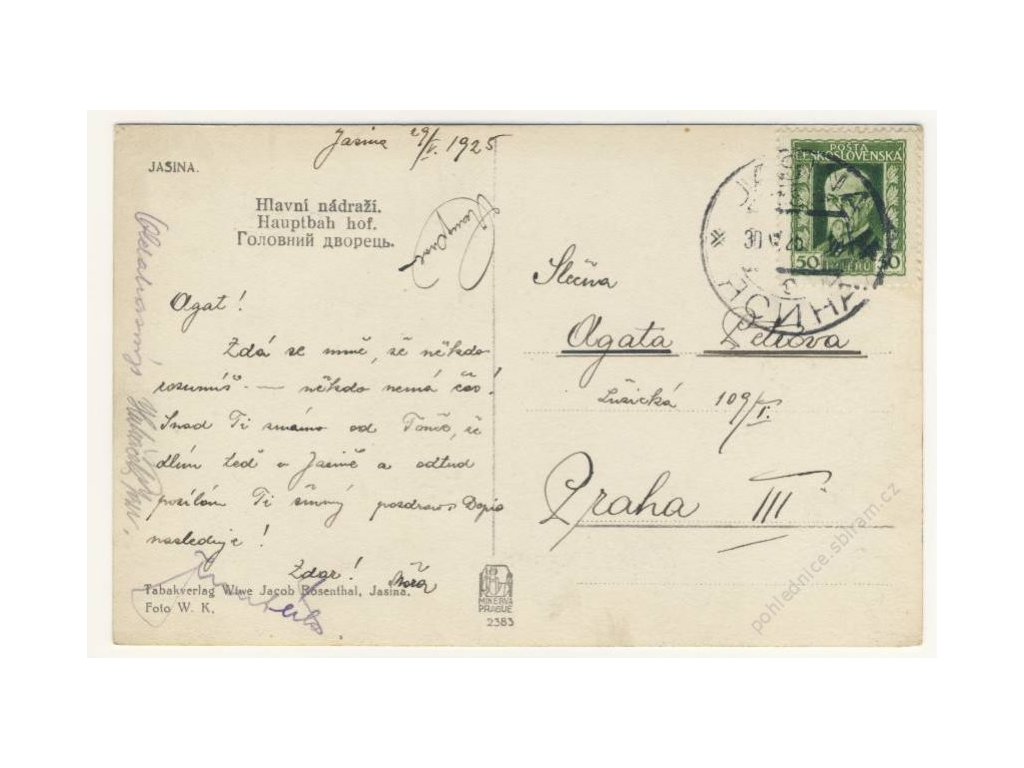 Jasina 29/V. 1925
JASINA.
Hlavní nádraží.
Hauptbah hof.
Головний дворець.
POŠTA
ČESKOSLOVENSKA
50 50
Slečna
Agata
Lužická 109/I.
Praha III
Agat!
Zdá se mně, že někdo
rozumíš — někdo nemá čas!
Snad Ti známo od Tonče, že
dlím teď v Jasině a odtud
posílám Ti pozdrav. Dopis
následuje!
Zdar!
Tabakverlag Wiwe Jacob Rosenthal, Jasina.
Foto W. K.
MINERVA
PRAGUE
2383
pohlednice.sbiram.cz